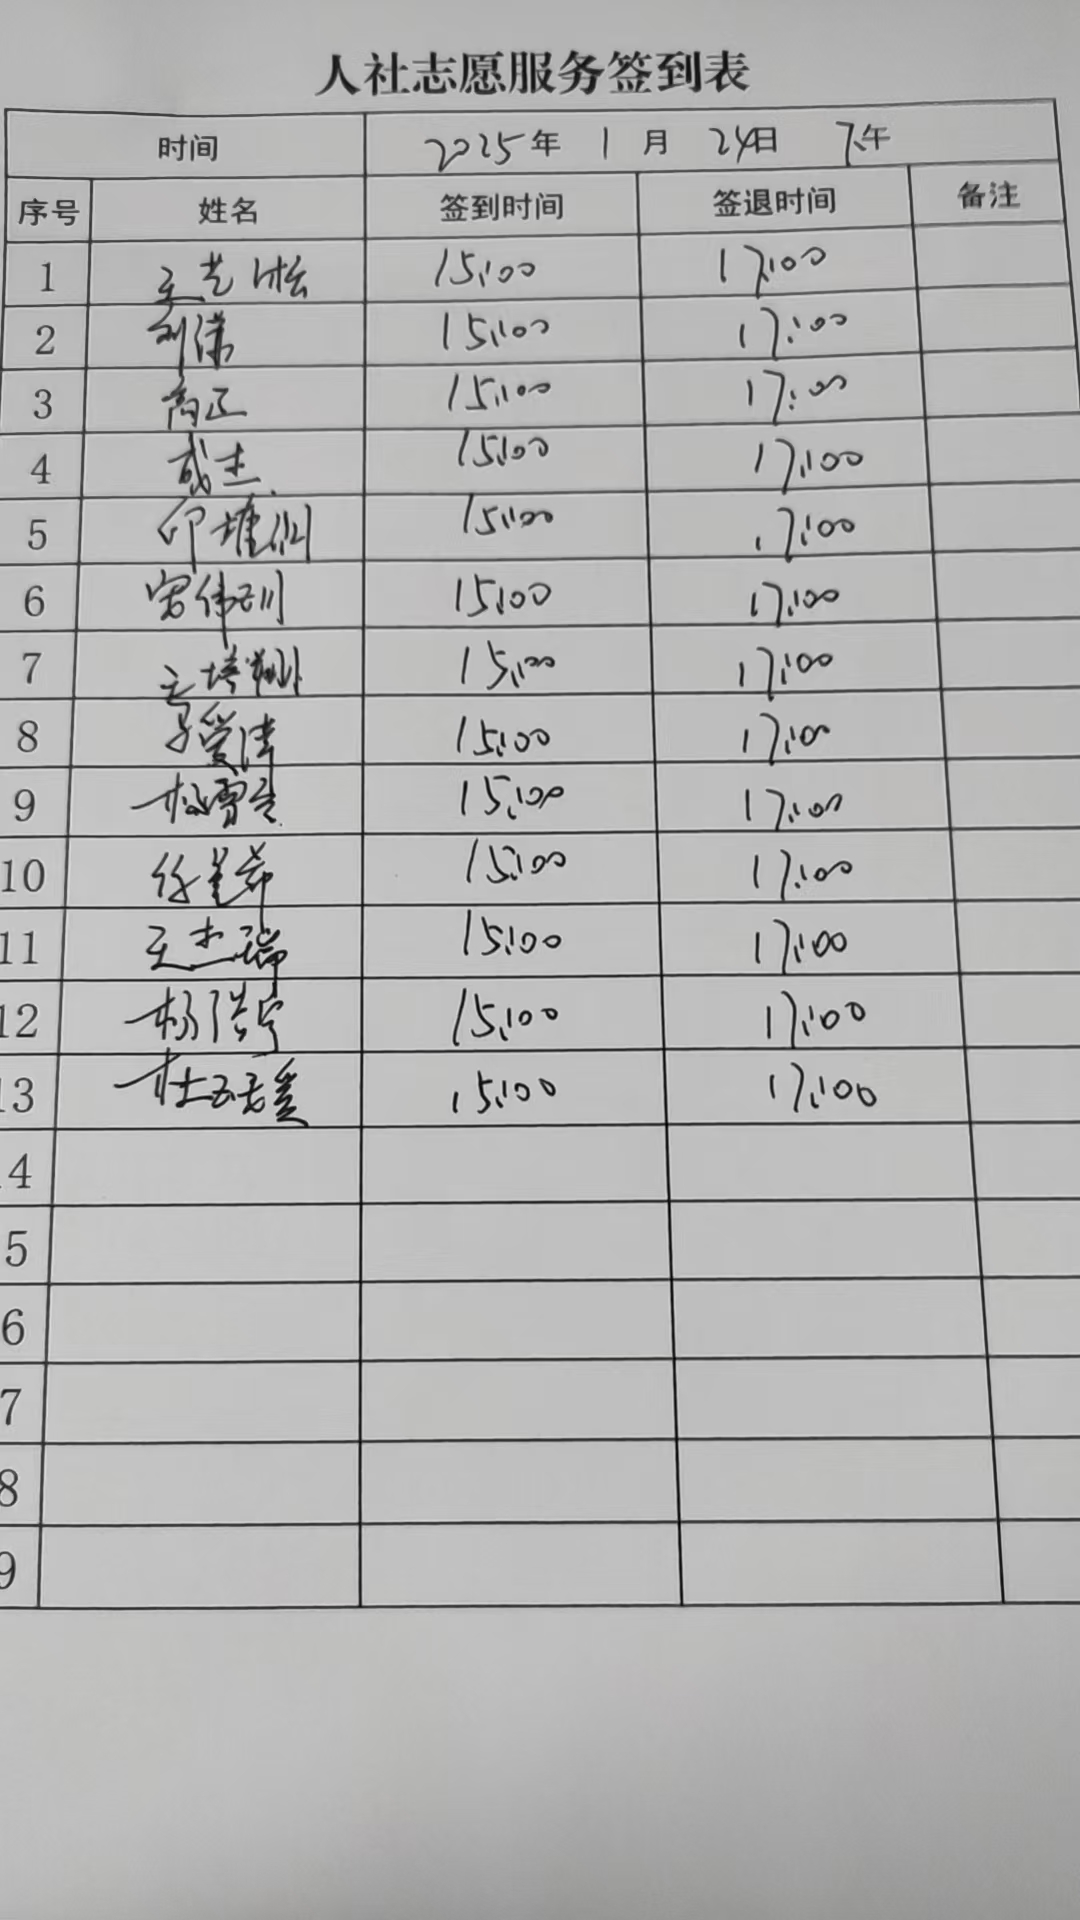 人社志愿服务签到表
时间 2025年 1月 24日 下午
序号 姓名 签到时间 签退时间 备注
1 王艺淞 15:00 17:00
2 刘 15:00 17:00
3 高正 15:00 17:00
4 成杰 15:00 17:00
5 15:00 17:00
6 15:00 17:00
7 王培翔 15:00 17:00
8 15:00 17:00
9 杨雪 15:00 17:00
10 任 15:00 17:00
11 王杰瑞 15:00 17:00
12 杨浩宇 15:00 17:00
13 杜 15:00 17:00
4
5
6
7
8
9